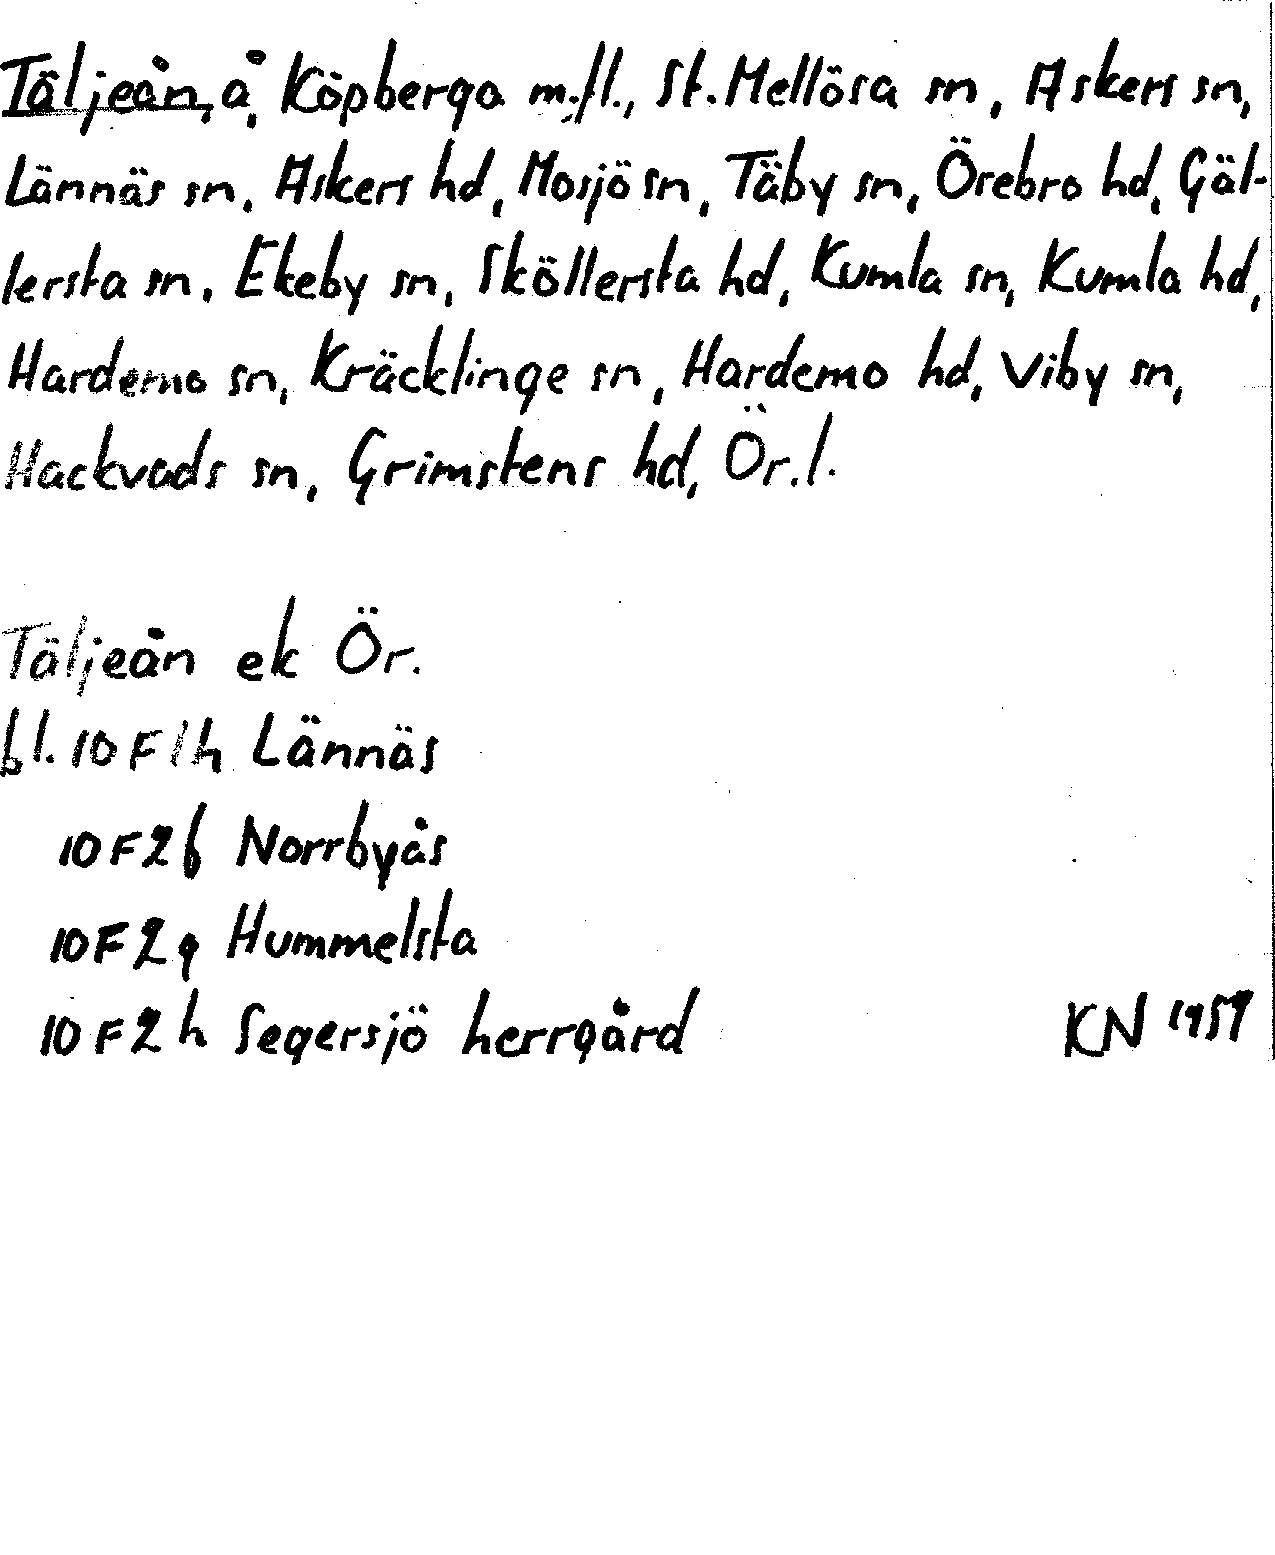 Täljeån, å, Köpberga m.fl., St. Mellösa sn, Askers sn,
Lännäs sn, Askers hd, Mosjö sn, Täby sn, Örebro hd, Gäl-
lersta sn, Ekeby sn, Sköllersta hd, Kumla sn, Kumla hd,
Hardemo sn, Kräcklinge sn, Hardemo hd, Viby sn,
Hackvads sn, Grimstens hd, Ör. l.
Täljeån ek Ör.
bl. 10 F 1 h Lännäs
10 F 2 f Norrbyås
10 F 2 g Hummelsta
10 F 2 h Segersjö herrgård
KN 1959